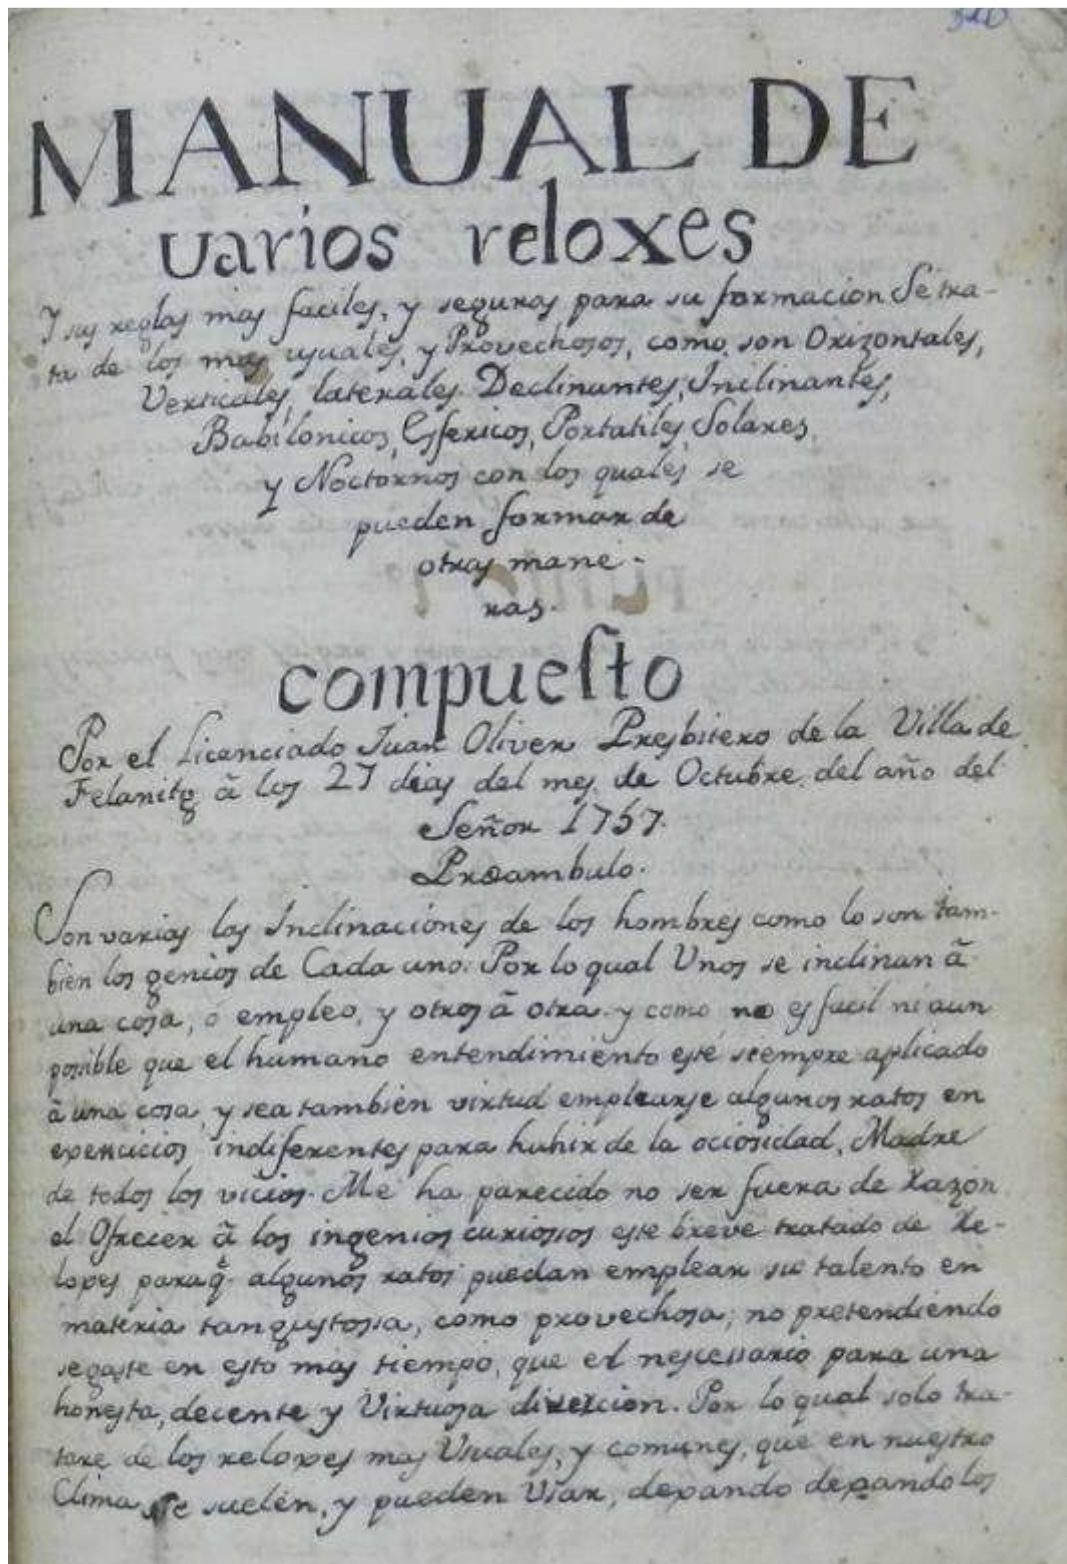 310
MANUAL DE
varios reloxes
Y sus reglas mas faciles, y seguras para su formacion Se tra-
ta de los mas usuales, y Provechosos, como son Orizontales,
Verticales, laterales Declinantes, Inclinantes,
Babilonicos, Esfericos, Portatiles, Solares,
y Noctornos con los quales se
pueden formar de
otras mane-
ras.
compuesto
Por el Licenciado Juan Oliver Presbitero de la Villa de
Felanitg â los 27 dias del mes de Octubre del año del
Señor 1757.
Preambulo.
Son varias las Inclinaciones de los hombres como lo son tam-
bien los genios de Cada uno: Por lo qual Unos se inclinan â
una cosa, o empleo, y otros â otra y como no es facil ni aun
posible que el humano entendimiento esté siempre aplicado
â una cosa, y sea tambien virtud emplearse algunos ratos en
exercicios indiferentes para huhir de la ociosidad, Madre
de todos los vicios. Me ha parecido no ser fuera de Razon
el Ofrecer â los ingenios curiosos este breve tratado de Re-
loxes paraq̃ algunos ratos puedan emplear su talento en
materia tangustossa, como provechosa; no pretendiendo
segaste en esto mas tiempo, que el nescessario para una
honesta, decente y Virtuosa diversion. Por lo qual solo tra-
tare de los reloxes mas Usuales, y comunes, que en nuestro
Clima se suelen, y pueden Usar, dexando dexando los